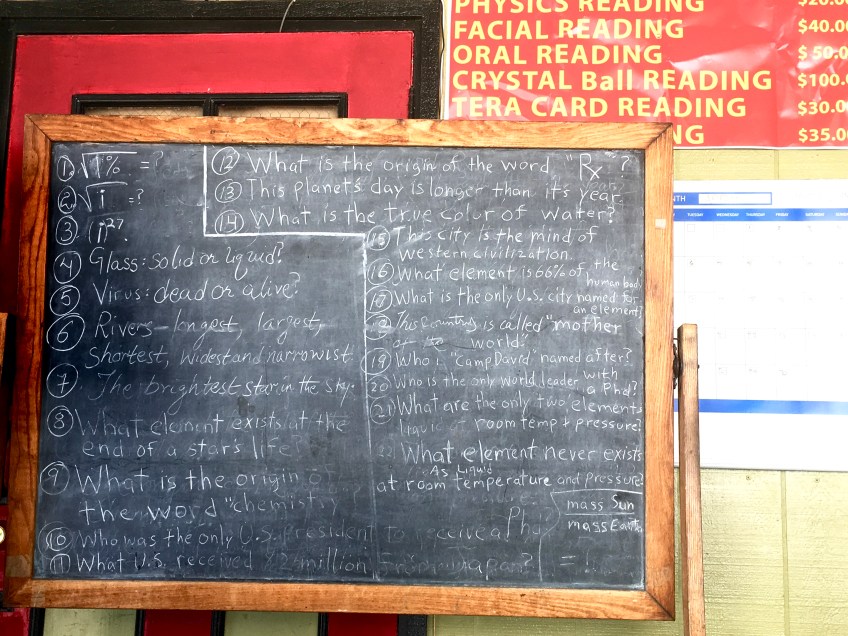 PHYSICS READING $20.0
FACIAL READING $40.0
ORAL READING $50.0
CRYSTAL Ball READING $100.
TERA CARD READING $30.0
NG $35.0
TUESDAY WEDNESDAY THURSDAY FRIDAY SATURDAY
① √1% = ?
② √i = ?
③ (i)²⁷.
④ Glass: solid or liquid?
⑤ Virus: dead or alive?
⑥ Rivers - longest, largest,
shortest, widest and narrowist
⑦ The brightest star in the sky.
⑧ What element exists at the
end of a star's life?
⑨ What is the origin of
the word "chemistry
⑩ Who was the only U.S. President to receive a PhD
⑪ What U.S. received 2 million Japan?
⑫ What is the origin of the word "Rx"?
⑬ This planet's day is longer than it's year.
⑭ What is the true color of water?
⑮ This city is the mind of
western civilization.
⑯ What element is 66% of the
human body
⑰ What is the only U.S. city named for
an element?
This country is called "mother
of the world".
⑲ Who is "Camp David" named after?
⑳ Who is the only world leader with
a Phd?
㉑ What are the only two elements
liquid at room temp + pressure?
22 What element never exists
As Liquid
at room temperature and pressure?
mass Sun
mass Earth
= !